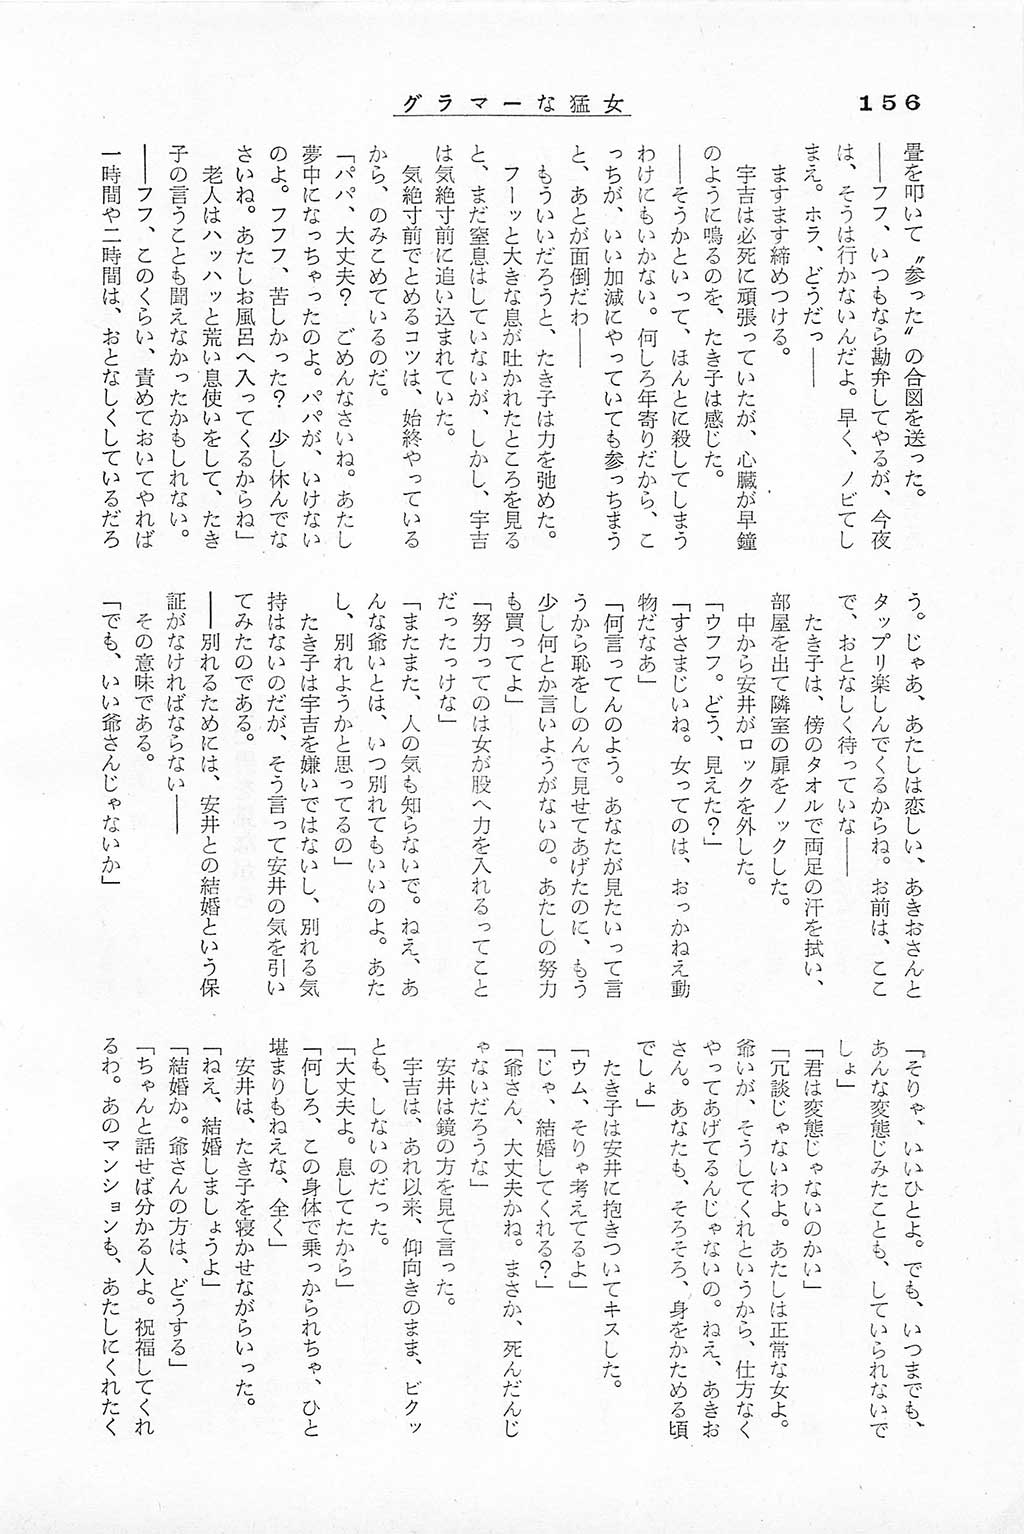 156
グラマーな猛女
畳を叩いて〝参った〟の合図を送った。
――フフ、いつもなら勘弁してやるが、今夜
は、そうは行かないんだよ。早く、ノビてし
まえ。ホラ、どうだっ――
ますます締めつける。
宇吉は必死に頑張っていたが、心臓が早鐘
のように鳴るのを、たき子は感じた。
――そうかといって、ほんとに殺してしまう
わけにもいかない。何しろ年寄りだから、こ
っちが、いい加減にやっていても参っちまう
と、あとが面倒だわ――
もういいだろうと、たき子は力を弛めた。
フーッと大きな息が吐かれたところを見る
と、まだ窒息はしていないが、しかし、宇吉
は気絶寸前に追い込まれていた。
気絶寸前でとめるコツは、始終やっている
から、のみこめているのだ。
「パパ、大丈夫？　ごめんなさいね。あたし
夢中になっちゃったのよ。パパが、いけない
のよ。フフフ、苦しかった？　少し休んでな
さいね。あたしお風呂へ入ってくるからね」
老人はハッハッと荒い息使いをして、たき
子の言うことも聞えなかったかもしれない。
――フフ、このくらい、責めておいてやれば
一時間や二時間は、おとなしくしているだろ
う。じゃあ、あたしは恋しい、あきおさんと
タップリ楽しんでくるからね。お前は、ここ
で、おとなしく待っていな――
たき子は、傍のタオルで両足の汗を拭い、
部屋を出て隣室の扉をノックした。
中から安井がロックを外した。
「ウフフ。どう、見えた？」
「すさまじいね。女ってのは、おっかねえ動
物だなあ」
「何言ってんのよう。あなたが見たいって言
うから恥をしのんで見せてあげたのに、もう
少し何とか言いようがないの。あたしの努力
も買ってよ」
「努力ってのは女が股へ力を入れるってこと
だったっけな」
「またまた、人の気も知らないで。ねえ、あ
んな爺いとは、いつ別れてもいいのよ。あた
し、別れようかと思ってるの」
たき子は宇吉を嫌いではないし、別れる気
持はないのだが、そう言って安井の気を引い
てみたのである。
――別れるためには、安井との結婚という保
証がなければならない――
その意味である。
「でも、いい爺さんじゃないか」
「そりゃ、いいひとよ。でも、いつまでも、
あんな変態じみたことも、していられないで
しょ」
「君は変態じゃないのかい」
「冗談じゃないわよ。あたしは正常な女よ。
爺いが、そうしてくれというから、仕方なく
やってあげてるんじゃないの。ねえ、あきお
さん。あなたも、そろそろ、身をかためる頃
でしょ」
たき子は安井に抱きついてキスした。
「ウム、そりゃ考えてるよ」
「じゃ、結婚してくれる？」
「爺さん、大丈夫かね。まさか、死んだんじ
ゃないだろうな」
安井は鏡の方を見て言った。
宇吉は、あれ以来、仰向きのまま、ビクッ
とも、しないのだった。
「大丈夫よ。息してたから」
「何しろ、この身体で乗っかられちゃ、ひと
堪まりもねえな、全く」
安井は、たき子を寝かせながらいった。
「ねえ、結婚しましょうよ」
「結婚か。爺さんの方は、どうする」
「ちゃんと話せば分かる人よ。祝福してくれ
るわ。あのマンションも、あたしにくれたく